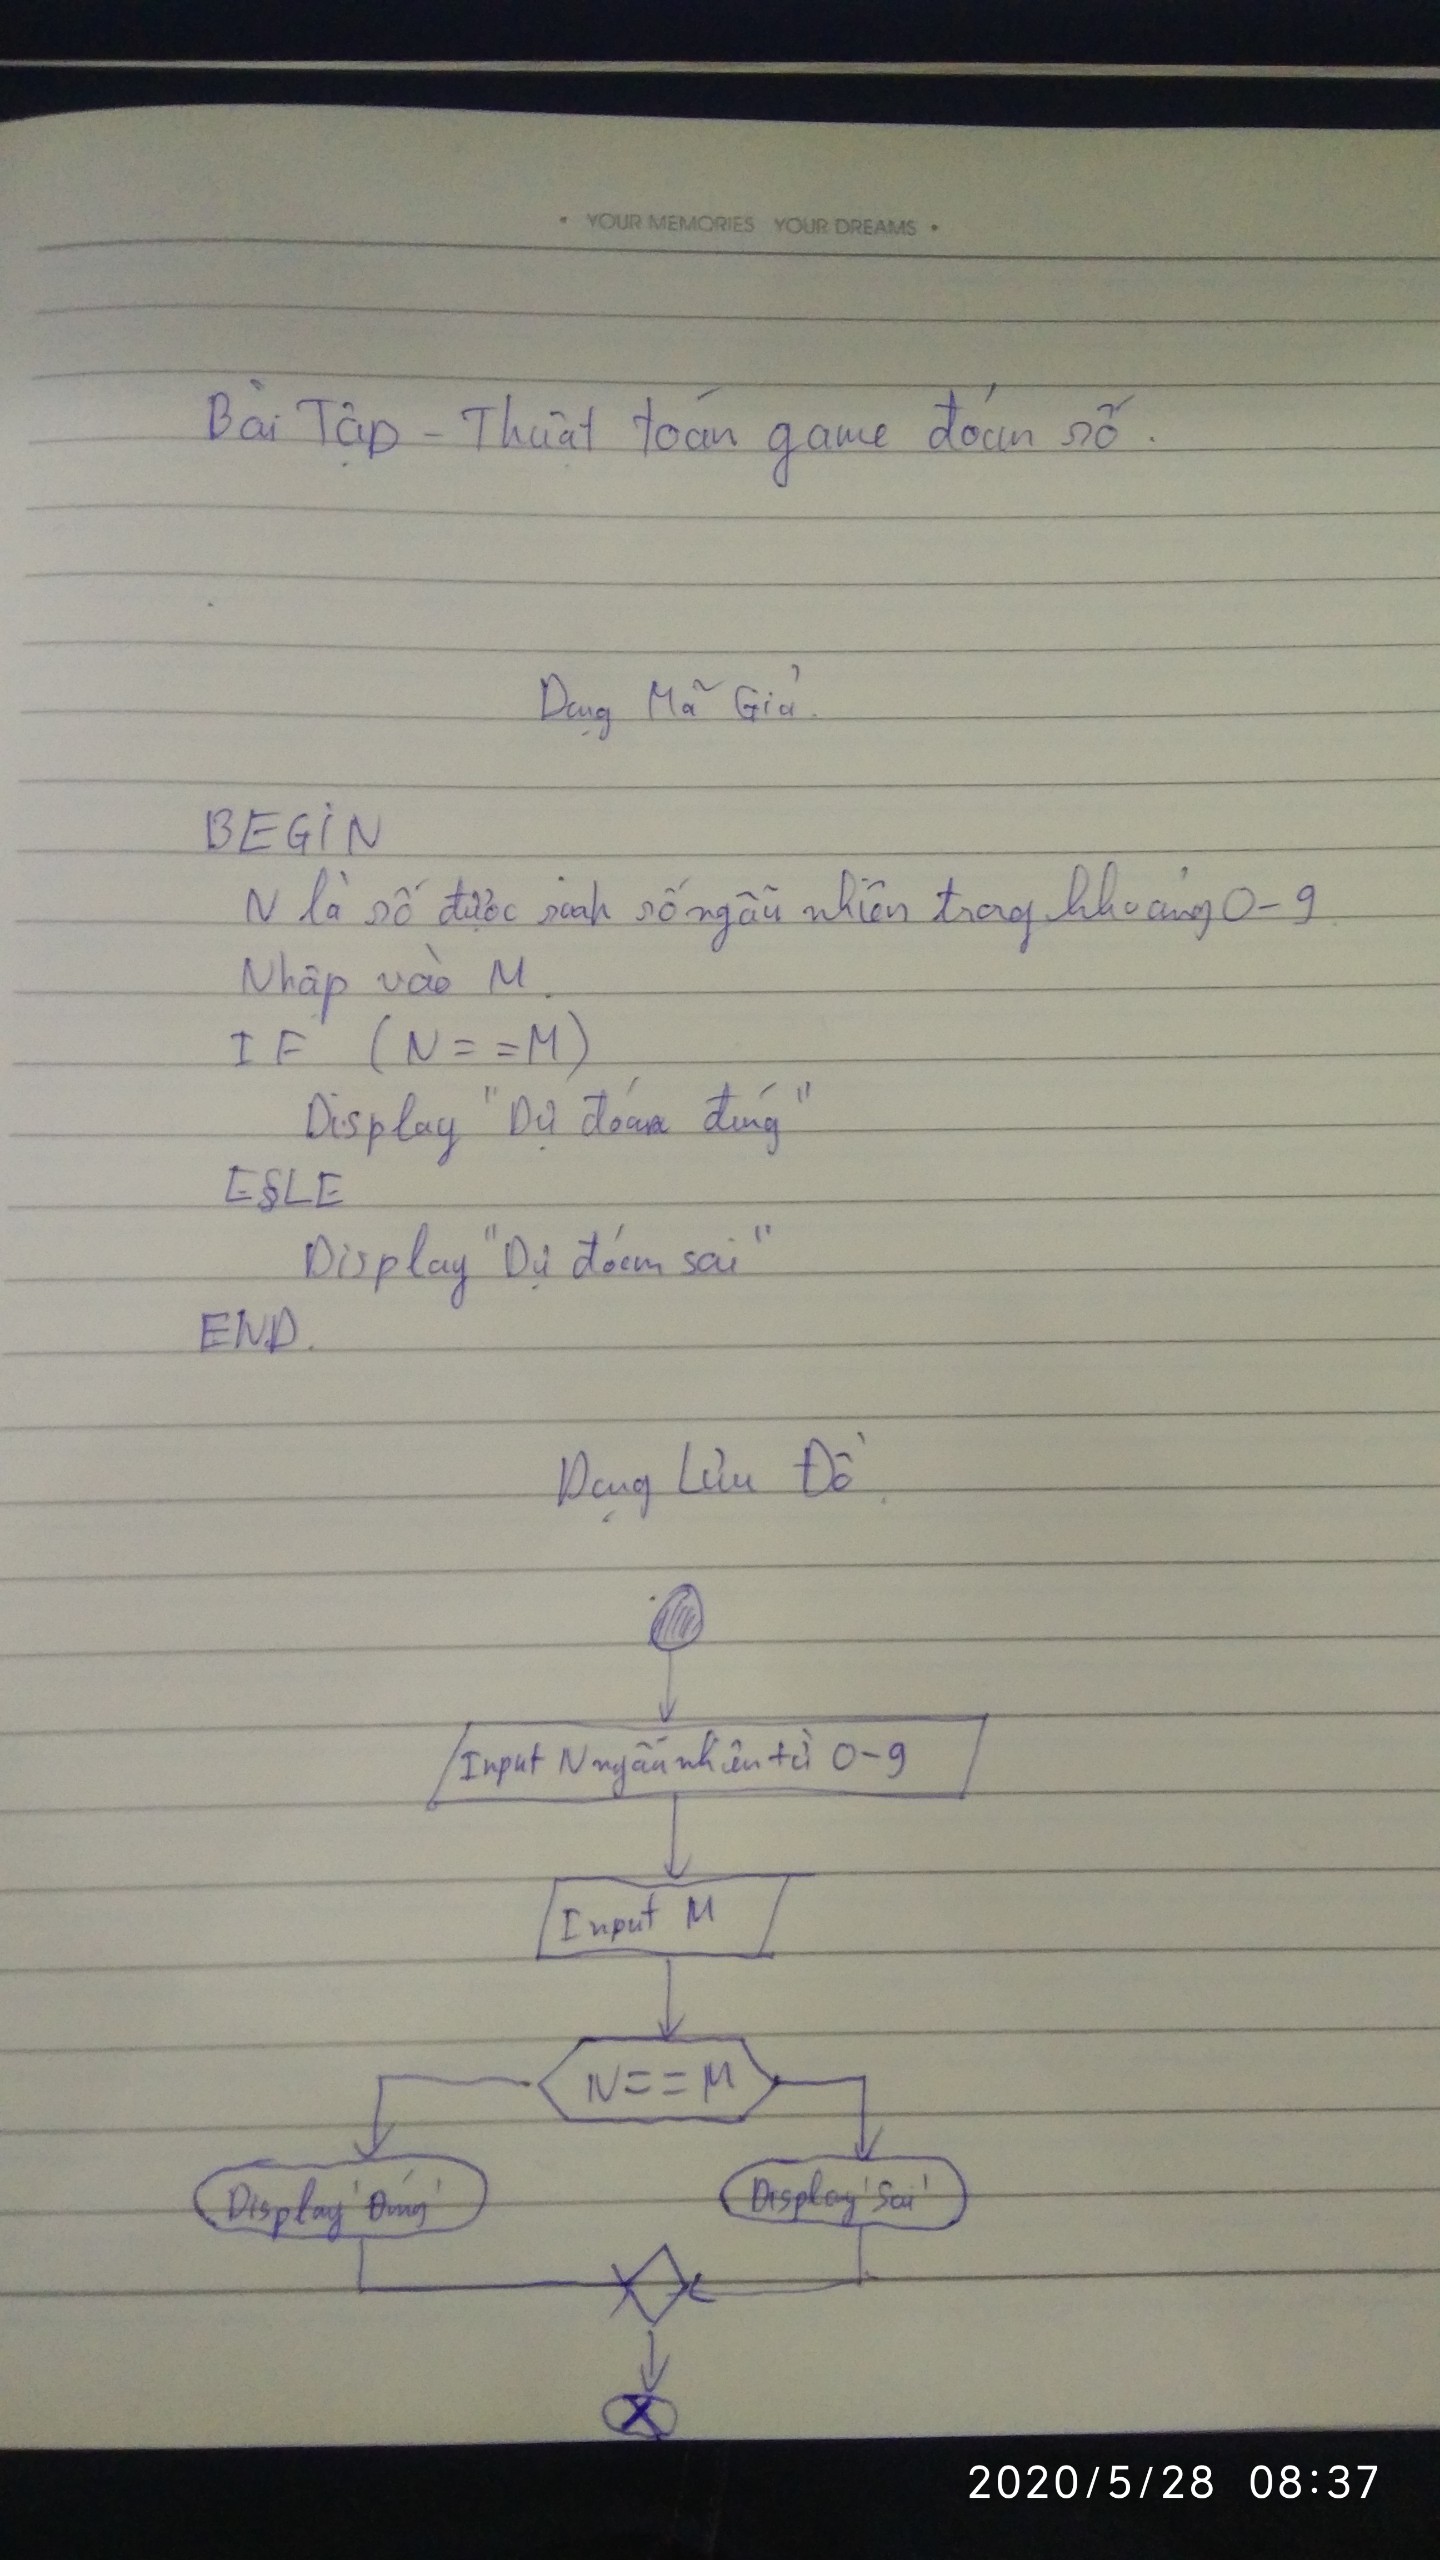 • YOUR MEMORIES YOUR DREAMS •
Bài Tập - Thuật toán game đoán số.
Dạng Mã Giả.
BEGIN
N là số được sinh số ngẫu nhiên trong khoảng 0-9
Nhập vào M.
IF (N==M)
Display "Dự đoán đúng"
ESLE
Display "Dự đoán sai"
END.
Dạng Lưu Đồ.
Input N ngẫu nhiên từ 0-9
Input M
N==M
Display 'Đúng'
Display 'Sai'
X
2020/5/28 08:37